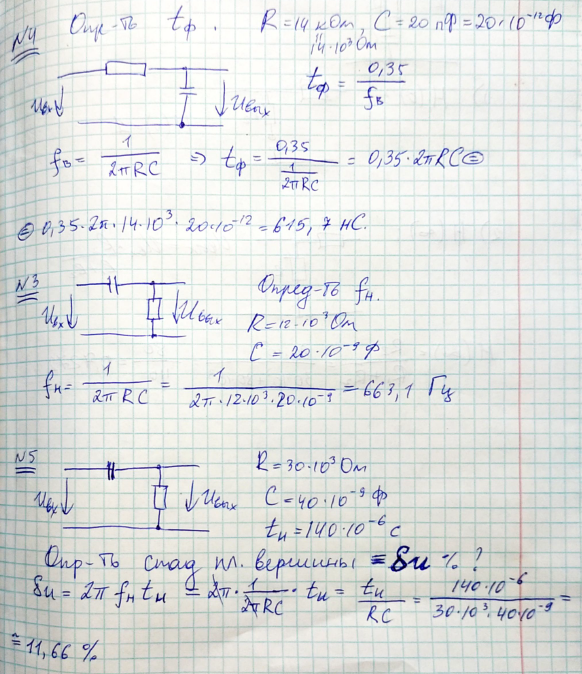 N4 Опр-ть tф. R=14 кОм, C=20 пФ=20·10⁻¹²Ф
14·10³ Ом
Uвх Uвых tф = 0,35/fв
fв = 1/(2πRC) ⇒ tф = 0,35/(1/(2πRC)) = 0,35·2πRC ⊜
⊜ 0,35·2π·14·10³·20·10⁻¹² = 615,7 нС.
N3 Опред-ть fн.
Uвх Uвых R=12·10³ Ом
C = 20·10⁻⁹ Ф
fн = 1/(2πRC) = 1/(2π·12·10³·20·10⁻⁹) = 663,1 Гц
N5 R=30·10³ Ом
Uвх Uвых C=40·10⁻⁹ Ф
tи=140·10⁻⁶ с
Опр-ть спад пл. вершины = δu % ?
δu = 2π fн tи = 2π·1/(2πRC)·tи = tи/(RC) = 140·10⁻⁶/(30·10³·40·10⁻⁹) =
≅ 11,66 %